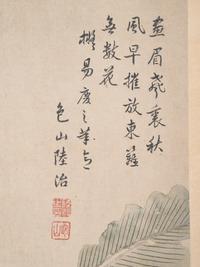 畫眉聲裏秋
風早摧放東籬
無數花
擬易慶之筆意
包山陸治